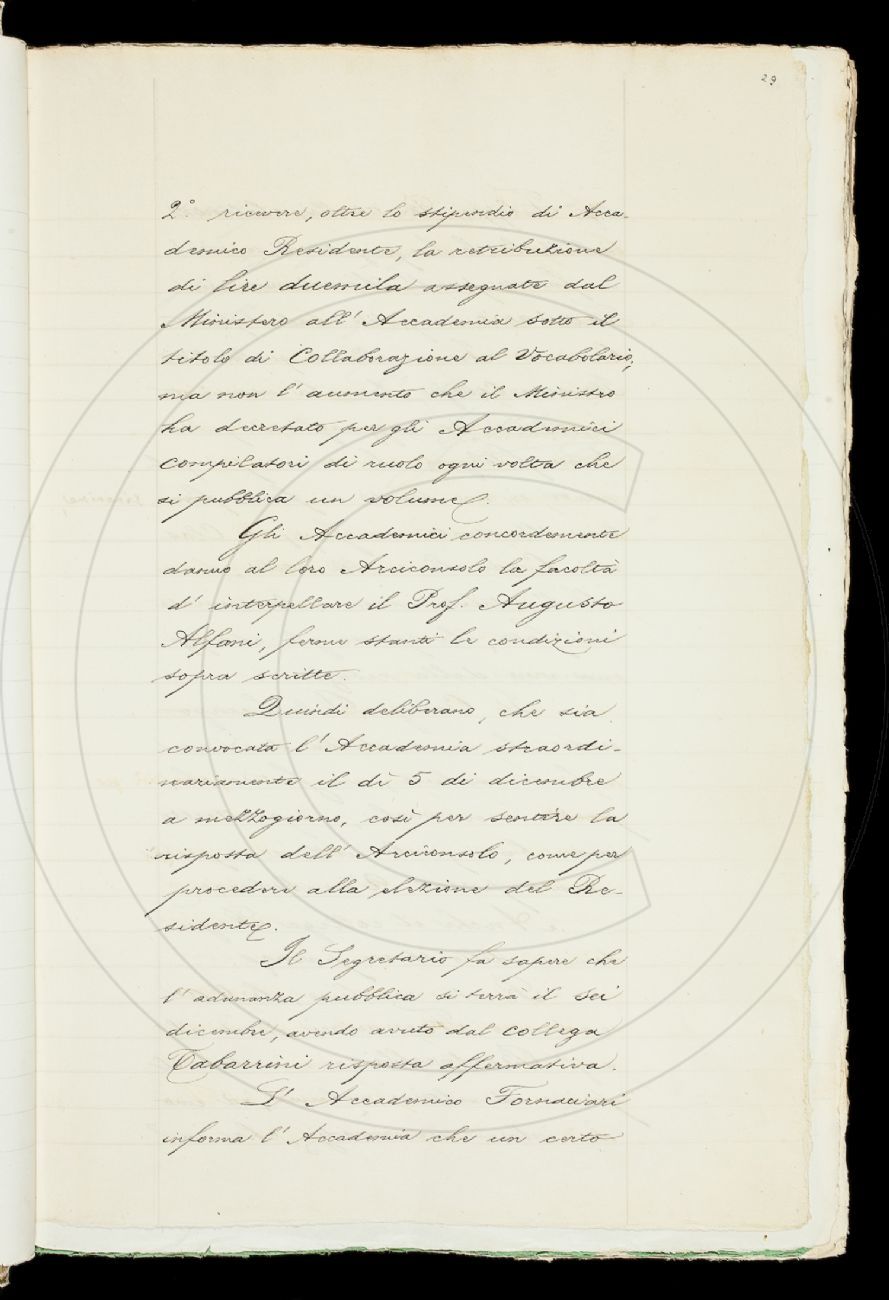 29
2° ricevere, oltre lo stipendio di Acca-
demico Residente, la retribuzione
di lire duemila assegnate dal
Ministero all'Accademia sotto il
titolo di Collaborazione al Vocabolario;
ma non l'aumento che il Ministro
ha decretato per gli Accademici
compilatori di ruolo ogni volta che
si pubblica un volume.
Gli Accademici concordemente
danno al loro Arciconsolo la facoltà
d'interpellare il Prof. Augusto
Alfani, ferme stanti le condizioni
sopra scritte.
Quindi deliberano, che sia
convocata l'Accademia straordi-
nariamente il dì 5 di dicembre
a mezzogiorno, così per sentire la
risposta dell'Arciconsolo, come per
procedere alla elezione del Re-
sidente.
Il Segretario fa sapere che
l'adunanza pubblica si terrà il sei
dicembre, avendo avuto dal collega
Tabarrini risposta affermativa.
L'Accademico Fornaciari
informa l'Accademia che un certo